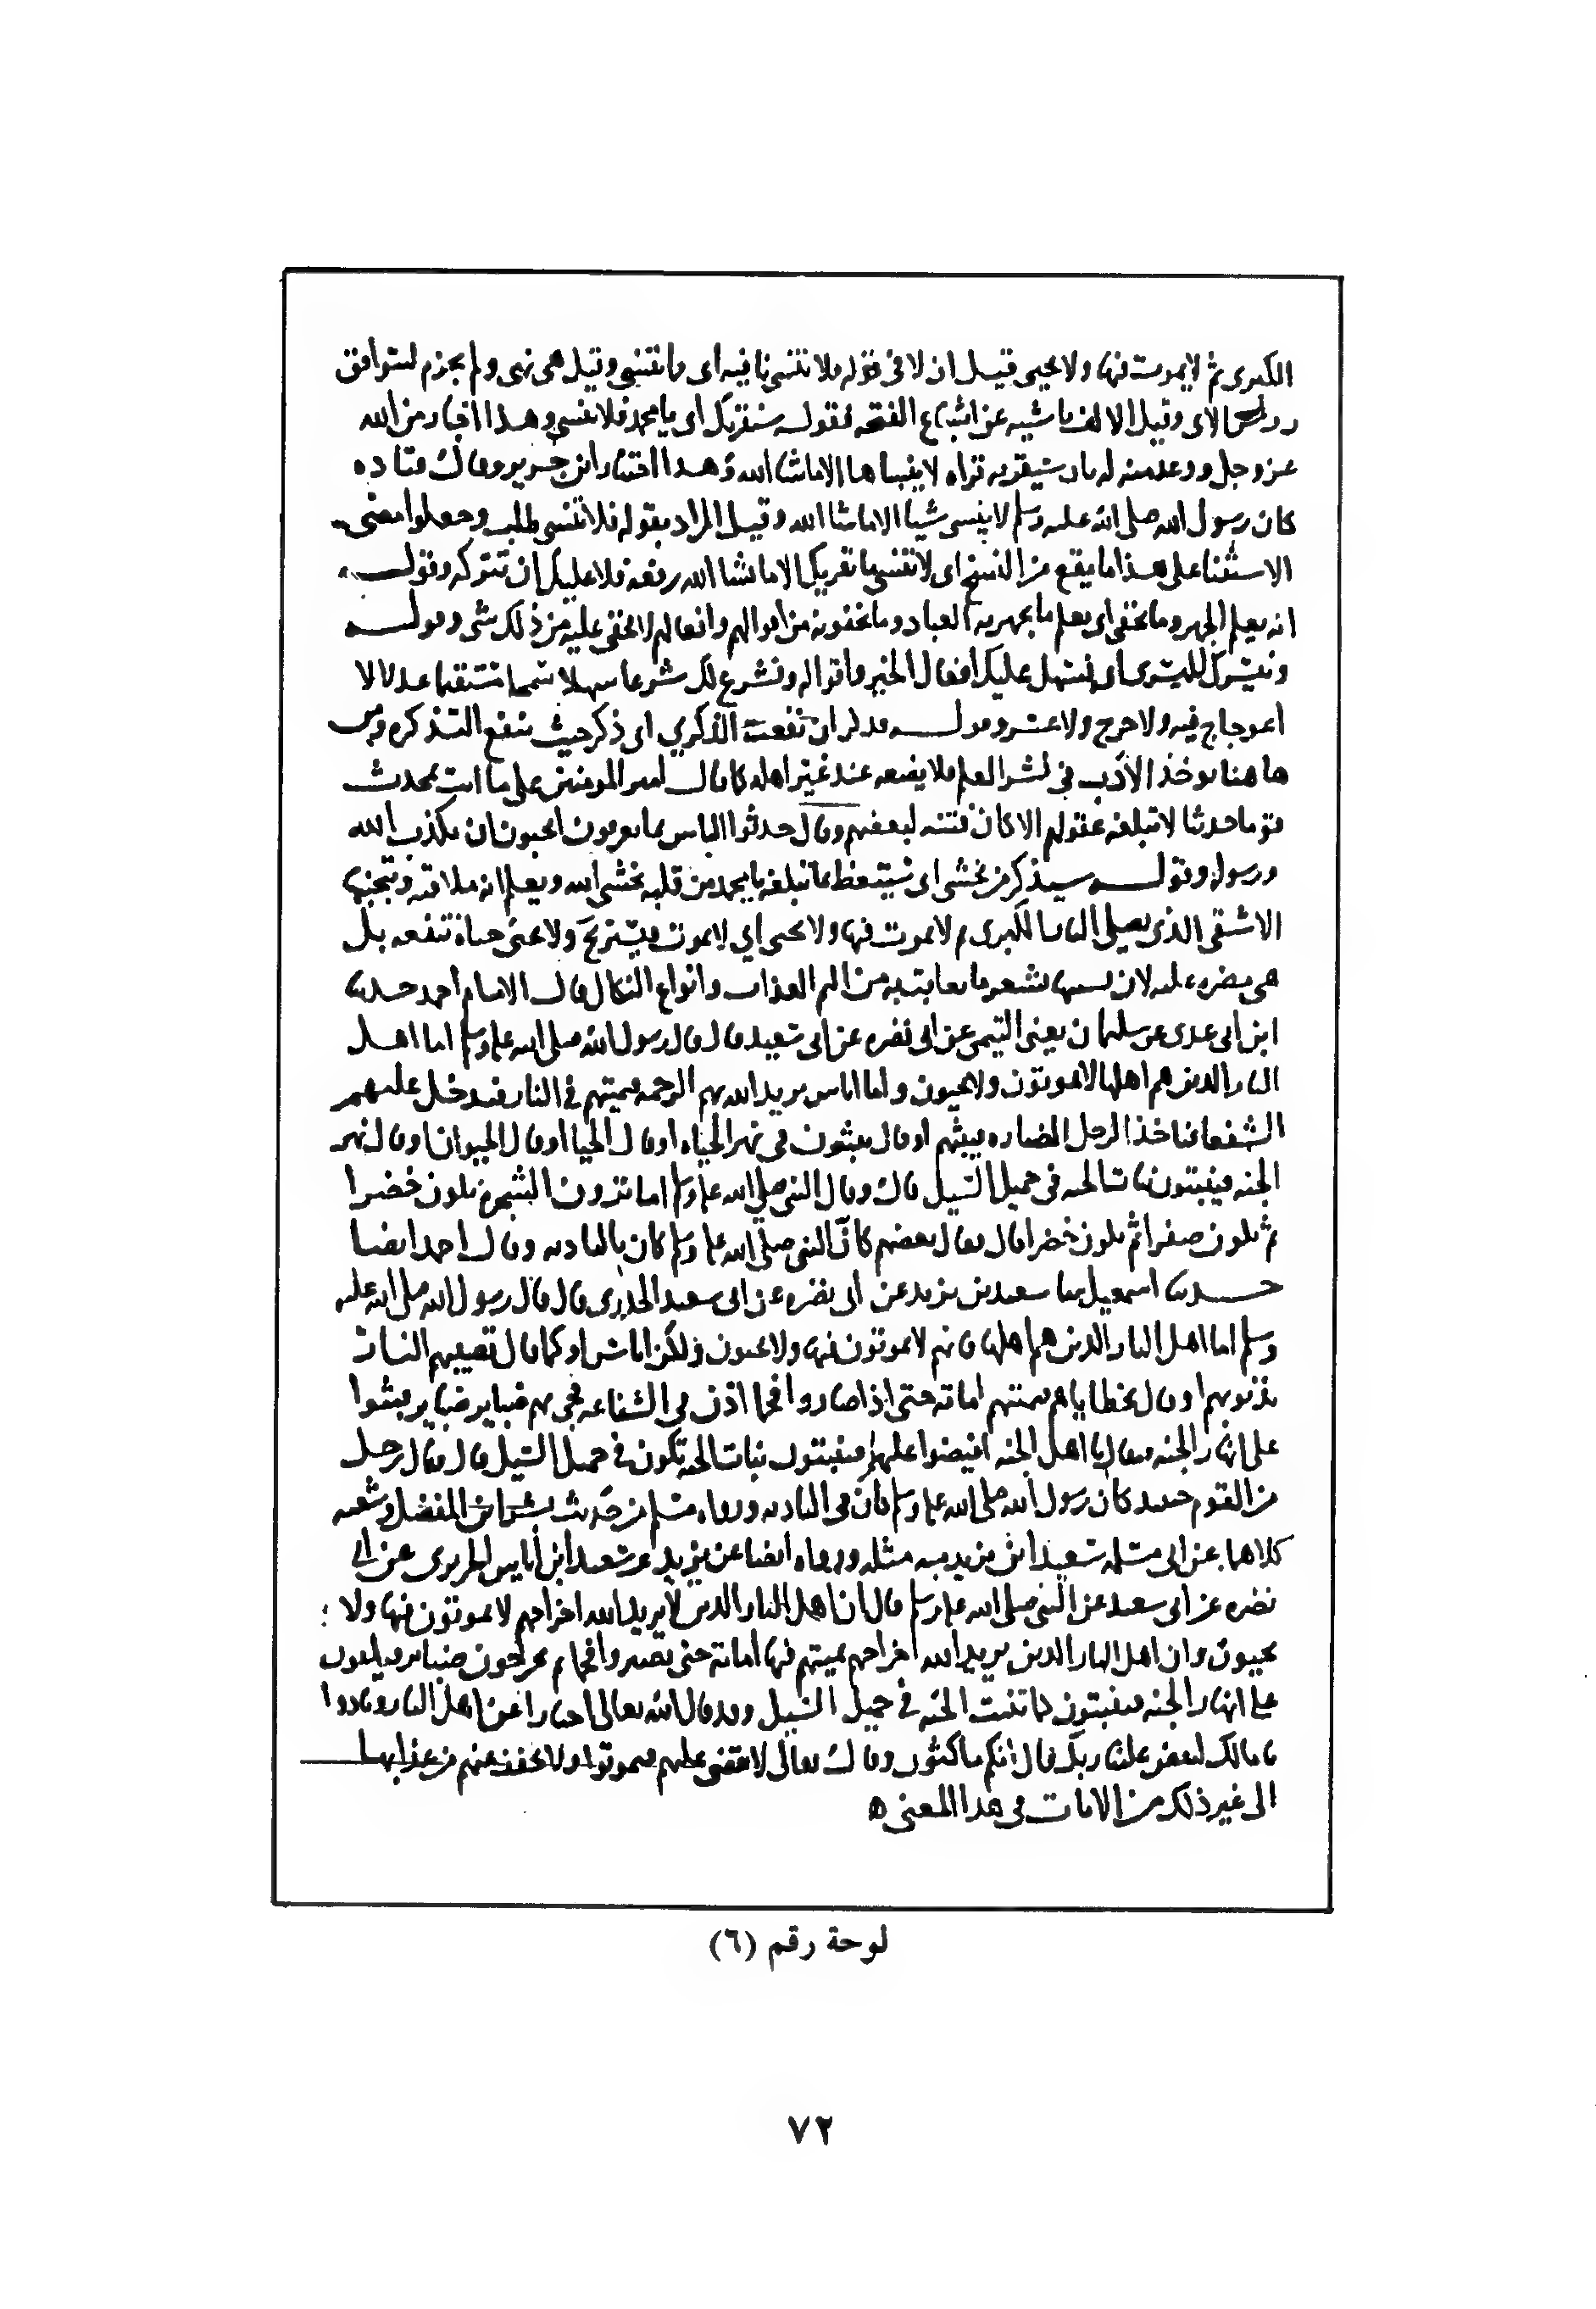 الكبرى ثم لا يموت فيها ولا يحيى قيل ان لا في قوله فلا تنسى نافيه اى ما تنسى وقيل هى نهى ولم يجزم لتوافق
الاى وقيل الالف ناشيه عن اشباع الفتحه فقوله سنقريك اى يا محمد فلا تنسى وهذا اخبار من الله
عز وجل ووعد منه له بان سيقريه قراه لا ينساها الا ما شا الله وهذا اختيار ابن جرير وقال قتاده
كان رسول الله صلى الله عليه وسلم لا ينسى شيا الا ما شا الله وقيل المراد بقوله فلا تنسى طلب وجعلوا معنى
الاستثنا على هذا ما يقع من النسخ اى لا تنسى ما نقريك الا ما شا الله رفعه فلا عليك ان تتركه وقوله
انه يعلم الجهر وما يخفى اى يعلم ما يجهر به العباد وما يخفونه من اقوالهم وافعالهم لا يخفى عليه من ذلك شى وقوله
ونيسرك لليسرى اى نسهل عليك افعال الخير واقواله ونشرع لك شرعا سهلا سمحا مستقيما عدلا لا
اعوجاج فيه ولا حرج ولا عسر وقوله فذكر ان نفعت الذكري اى ذكر حيث تنفع التذكره ومن
ها هنا يوخذ الادب في نشر العلم فلا يضعه عند غير اهله كما قال امير المومنين على ما انت بمحدث
قوما حديثا لا تبلغه عقولهم الا كان فتنه لبعضهم وقال حدثوا الناس بما يعرفون اتحبون ان يكذب الله
ورسوله وقوله سيذكر من يخشى اى سيتعظ بما تبلغه يا محمد من قلبه يخشى الله ويعلم انه ملاقيه ويتجنبها
الاشقى الذى يصلى النار الكبرى ثم لا يموت فيها ولا يحيى اي لا يموت فيستريح ولا يحيى حياة تنفعه بل
هى مضره عليه لان بسببها يشعر ما يعاقب به من اليم العذاب وانواع النكال قال الامام احمد حدثنا
ابن ابى عدى عن سليمان يعنى التيمى عن ابى نضره عن ابى سعيد قال قال رسول الله صلى الله عليه وسلم اما اهل
النار الذين هم اهلها لا يموتون ولا يحيون واما اناس يريد الله بهم الرحمه فيميتهم في النار فيدخل عليهم
الشفعا فياخذ الرجل الضباره فيبثهم او قال ينبثون في نهر الحياه او قال الحيا او قال الحيوان او قال نهر
الجنه فينبتون نبات الحبه في حميل السيل قال وقال النبى صلى الله عليه وسلم اما ترون الشجره تكون خضرا
ثم تكون صفرا ثم تكون خضرا قال فقال بعضهم كان النبى صلى الله عليه وسلم كان بالباديه وقال احمد ايضا
حدثنا اسمعيل ثنا سعيد بن يزيد عن ابى نضره عن ابى سعيد الخدرى قال قال رسول الله صلى الله عليه
وسلم اما اهل النار الذين هم اهلها فانهم لا يموتون فيها ولا يحيون ولكن اناس او كما قال تصيبهم النار
بذنوبهم او قال بخطاياهم فيميتهم اماته حتى اذا صاروا فحما اذن في الشفاعه فجى بهم ضباير ضباير فبثوا
على انهار الجنه فيقال يا اهل الجنه افيضوا عليهم فينبتون نبات الحبه تكون في حميل السيل قال فقال رجل
من القوم حينيذ كان رسول الله صلى الله عليه وسلم كان في الباديه ورواه مسلم من حديث بشر بن المفضل وشعبه
كلاهما عن ابى مسلمه سعيد ابن يزيد به مثله ورواه ايضا عن يزيد عن سعيد ابن اياس الجريرى عن ابي
نضره عن ابى سعيد عن النبى صلى الله عليه وسلم قال ان اهل النار الذين لا يريد الله اخراجهم لا يموتون فيها ولا
يحيون وان اهل النار الذين يريد الله اخراجهم يميتهم فيها اماته حتى يصيروا فحما ثم يخرجون ضباير فيلقون
على انهار الجنه فينبتون كما تنبت الحبه في حميل السيل وقد قال الله تعالى اخبارا عن اهل النار ونادوا
يا مالك ليقض علينا ربك قال انكم ماكثون وقال تعالى لا يقضى عليهم فيموتوا ولا يخفف عنهم من عذابها
الى غير ذلك من الايات في هذا المعنى ه
لوحة رقم (٦)
٧٢